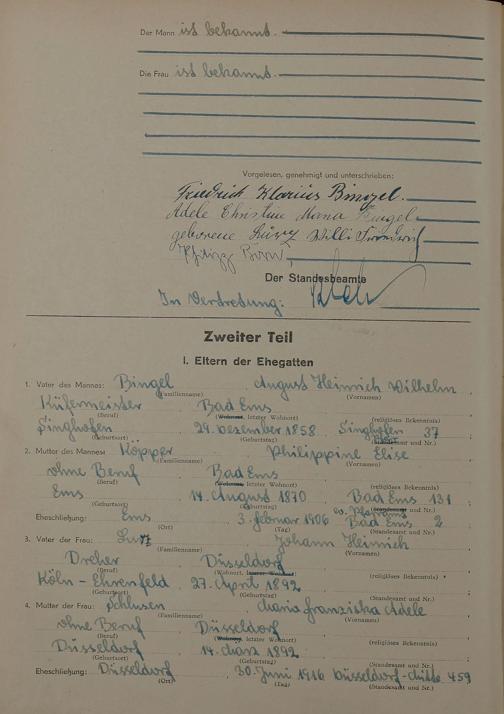 Der Mann ist bekannt.
Die Frau ist bekannt.
Vorgelesen, genehmigt und unterschrieben:
Friedrich Klarius Bingel.
Adele Christine Maria Bingel
geborene Willi Friedrich
Der Standesbeamte
In Vertretung:
Zweiter Teil
I. Eltern der Ehegatten
1. Vater des Mannes: Bingel August Heinrich Wilhelm
(Familienname) (Vornamen)
Küfermeister Bad Ems
(Beruf) (Wohnort, letzter Wohnort) (religiöses Bekenntnis)
Singhofen 29. Dezember 1858 Singhofen 37
(Geburtsort) (Geburtstag) (Standesamt und Nr.)
2. Mutter des Mannes: Köpper Philippine Elise
(Familienname) (Vornamen)
ohne Beruf Bad Ems
(Beruf) (Wohnort, letzter Wohnort) (religiöses Bekenntnis)
Ems 14. August 1870 Bad Ems 131
(Geburtsort) (Geburtstag) (Standesamt und Nr.)
Eheschließung: Ems 3. Februar 1906 ev. Pfarramt Bad Ems 2
(Ort) (Tag) (Standesamt und Nr.)
3. Vater der Frau: Johann Heinrich
(Familienname) (Vornamen)
Dreher Düsseldorf
(Beruf) (Wohnort, letzter Wohnort) (religiöses Bekenntnis)
Köln - Ehrenfeld 27. April 1892
(Geburtsort) (Geburtstag) (Standesamt und Nr.)
4. Mutter der Frau: Schlusen Maria Franziska Adele
(Familienname) (Vornamen)
ohne Beruf Düsseldorf
(Beruf) (Wohnort, letzter Wohnort) (religiöses Bekenntnis)
Düsseldorf 14. März 1892
(Geburtsort) (Geburtstag) (Standesamt und Nr.)
Eheschließung: Düsseldorf 30. Juni 1916 Düsseldorf-Mitte 459
(Ort) (Tag) (Standesamt und Nr.)